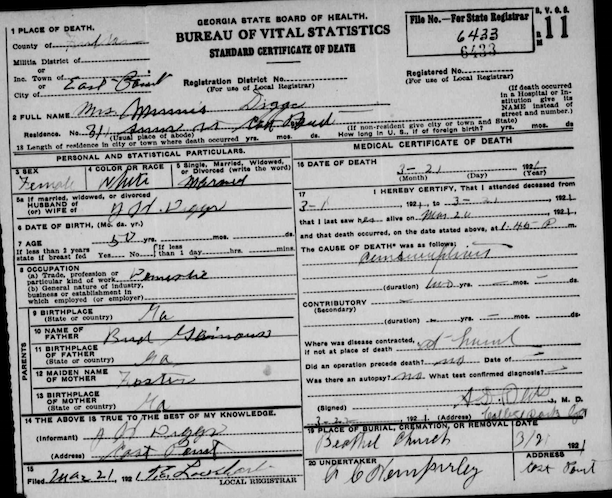 GEORGIA STATE BOARD OF HEALTH.
BUREAU OF VITAL STATISTICS
STANDARD CERTIFICATE OF DEATH
File No.—For State Registrar
6433
6433
B. V. S. 11
1 PLACE OF DEATH,
County of
Militia District of
or
Inc. Town of East Point
or
City of
Registration District No.
(For use of Local Registrar)
Registered No.
(For use of Local Registrar)
(If death occurred in a Hospital or Institution give its NAME instead of street and number.)
2 FULL NAME Mrs. Minnis Diggs
Residence. No.
(Usual place of abode)
(If non-resident give city or town and State)
18 Length of residence in city or town where death occurred yrs. mos. ds. How long in U. S., if of foreign birth? yrs. mos. ds.
PERSONAL AND STATISTICAL PARTICULARS.
3 SEX Female
4 COLOR OR RACE White
5 Single, Married, Widowed, or Divorced (write the word) Married
5a If married, widowed, or divorced
HUSBAND of
(or) WIFE of Diggs
6 DATE OF BIRTH, (Mo. da. yr.)
7 AGE 50 yrs. mos. ds.
If less than 2 years state if breast fed Yes No
If less than 1 day hrs. mins.
8 OCCUPATION
(a) Trade, profession or particular kind of work Domestic
(b) General nature of industry, business or establishment in which employed (or employer)
9 BIRTHPLACE (State or country) Ga
PARENTS
10 NAME OF FATHER Bud
11 BIRTHPLACE OF FATHER (State or country) Ga
12 MAIDEN NAME OF MOTHER Foster
13 BIRTHPLACE OF MOTHER (State or country) Ga
14 THE ABOVE IS TRUE TO THE BEST OF MY KNOWLEDGE.
(Informant) Diggs
(Address) East Point
15 Filed Mar 21 1921
LOCAL REGISTRAR
MEDICAL CERTIFICATE OF DEATH
16 DATE OF DEATH, 3-21 1921
(Month) (Day) (Year)
17 I HEREBY CERTIFY, That I attended deceased from
3-1 1921 to 3-21 1921
that I last saw her alive on Mar 20 1921
and that death occurred, on the date stated above, at 1:45 P m
The CAUSE OF DEATH* was as follows:
(duration) two yrs. mos. ds.
CONTRIBUTORY
(Secondary)
(duration) yrs. mos. ds.
Where was disease contracted, if not at place of death at home
Did an operation precede death? no Date of
Was there an autopsy? no What test confirmed diagnosis?
(Signed) M. D.
1921 (Address) College Park Ga
19 PLACE OF BURIAL, CREMATION, OR REMOVAL Bethel Church
DATE 1921
20 UNDERTAKER A C Hemperley
ADDRESS East Point